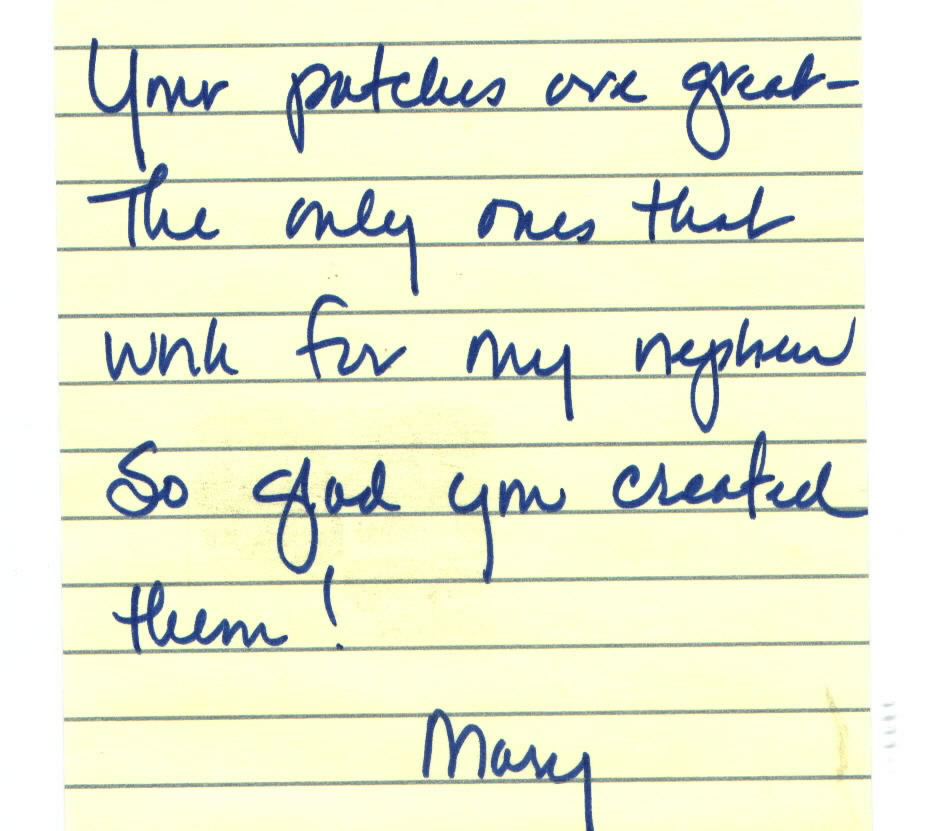 Your patches are great-
The only ones that
work for my nephew
So glad you created
them!
Mary